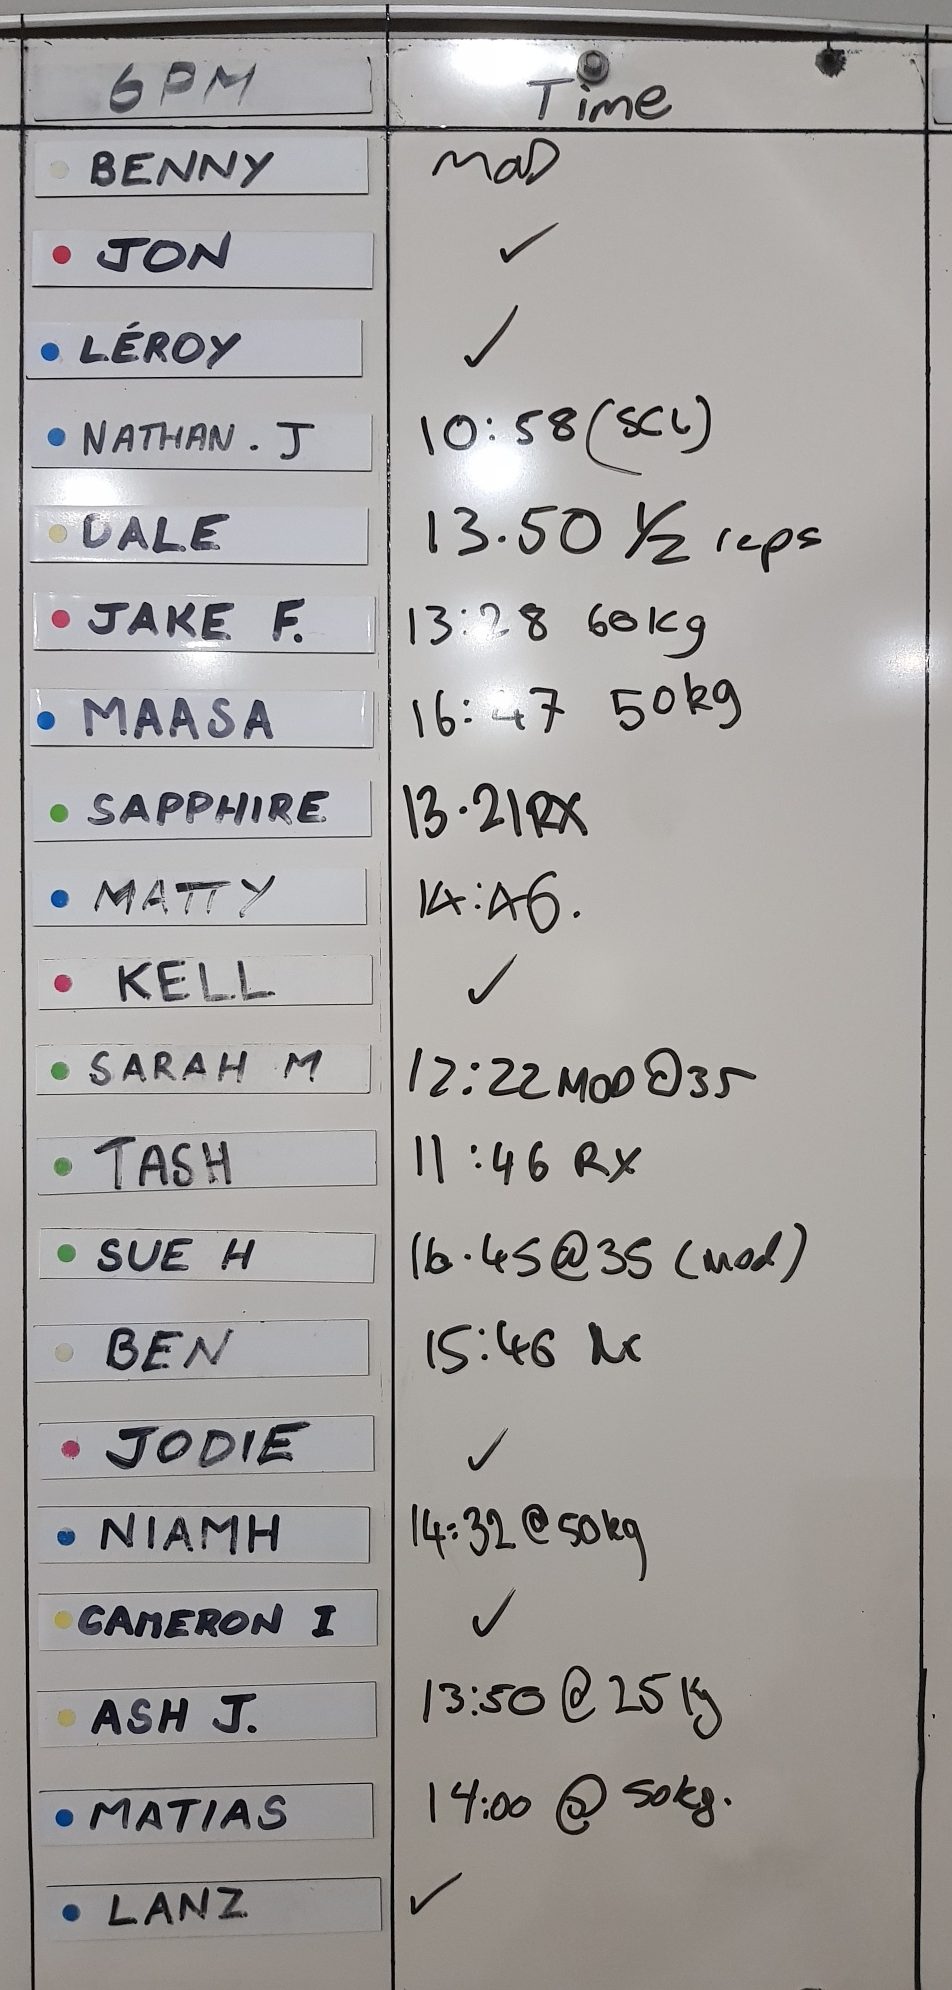 6PM Time
BENNY MOD
JON ✓
LÉROY ✓
NATHAN. J 10:58 (SCL)
DALE 13.50 1/2 reps
JAKE F. 13:28 60kg
MAASA 16:47 50kg
SAPPHIRE 13.21 RX
MATTY 14:46.
KELL ✓
SARAH M 12:22 MOD @35
TASH 11:46 RX
SUE H 16.45 @ 35 (mod)
BEN 15:46 Rx
JODIE ✓
NIAMH 14:32 @ 50kg
CAMERON I ✓
ASH J. 13:50 @ 25kg
MATIAS 14:00 @ 50kg.
LANZ ✓